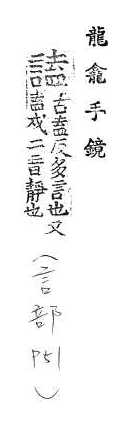 龍龕手鏡
古盍反多言也又
盍戒二音靜也
(言部 P51)